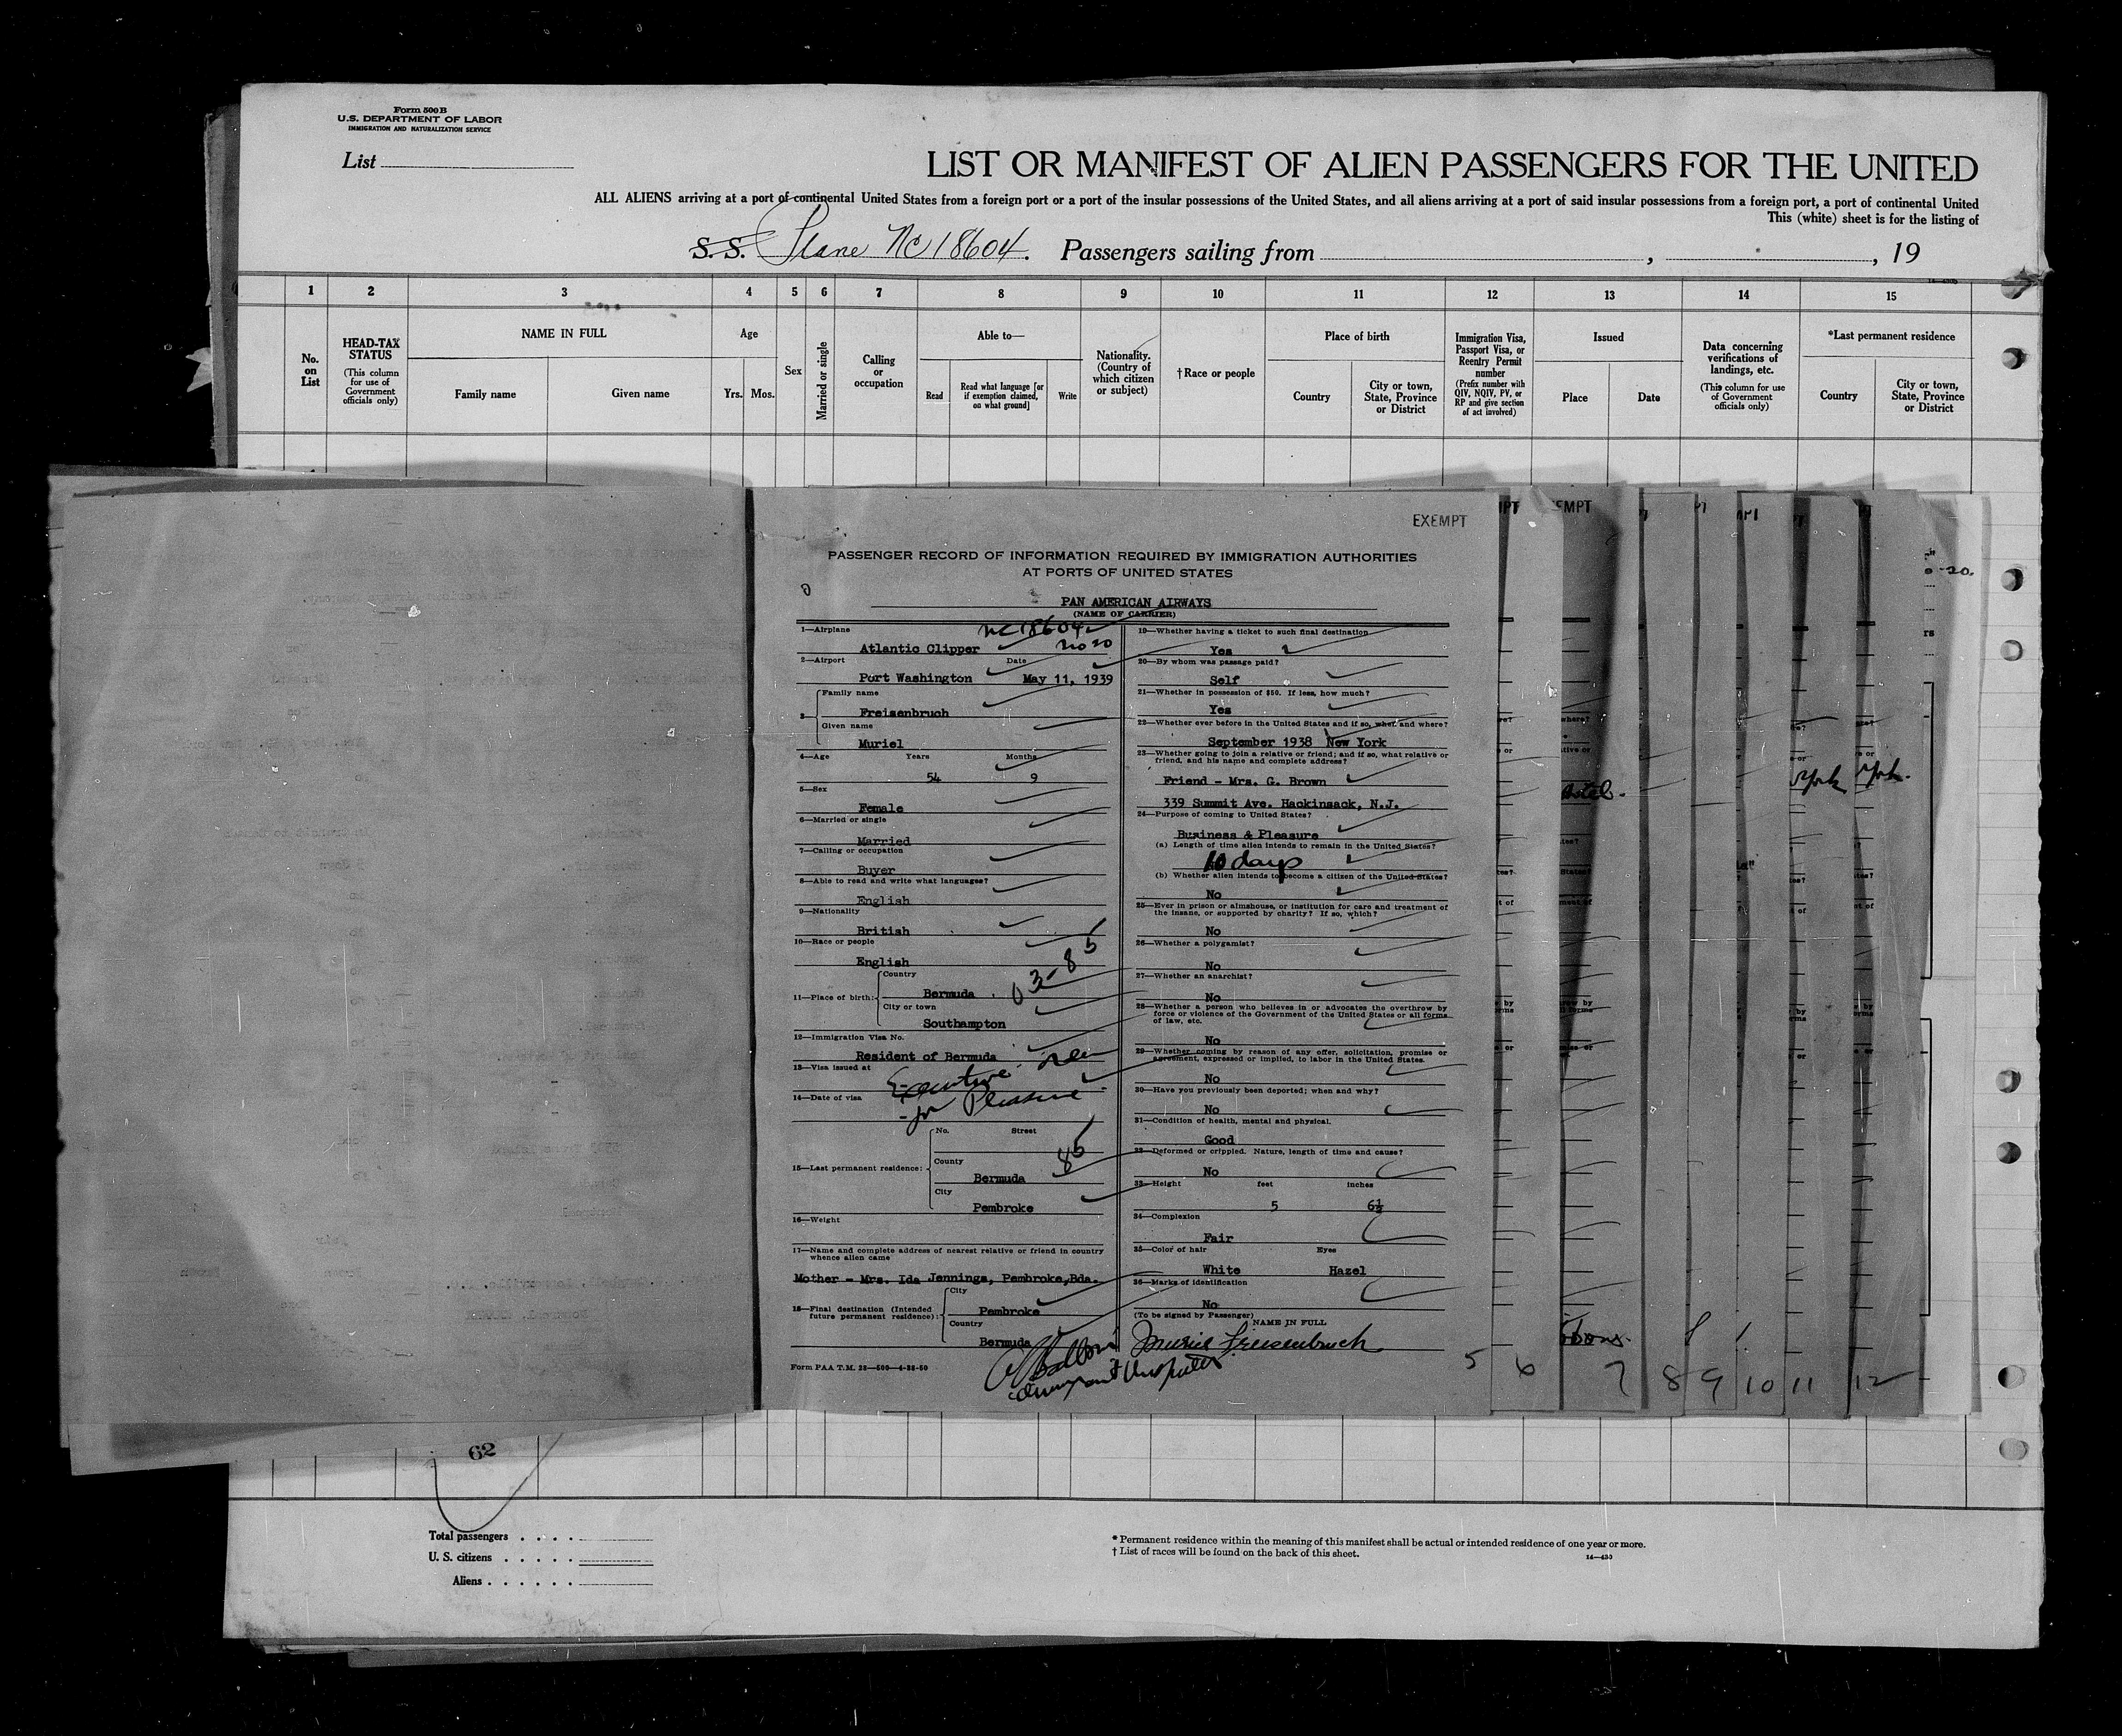 Form 500B
U.S. DEPARTMENT OF LABOR
IMMIGRATION AND NATURALIZATION SERVICE
List
LIST OR MANIFEST OF ALIEN PASSENGERS FOR THE UNITED
ALL ALIENS arriving at a port of continental United States from a foreign port or a port of the insular possessions of the United States, and all aliens arriving at a port of said insular possessions from a foreign port, a port of continental United
This (white) sheet is for the listing of
S.S. Plane NC 18604. Passengers sailing from , , 19
1 2 3 4 5 6 7 8 9 10 11 12 13 14 15
No. on List
HEAD-TAX STATUS
(This column for use of Government officials only)
NAME IN FULL
Family name Given name
Age
Yrs. Mos.
Sex
Married or single
Calling or occupation
Able to—
Read
Read what language [or if exemption claimed, on what ground]
Write
Nationality. (Country of which citizen or subject)
†Race or people
Place of birth
Country
City or town, State, Province or District
Immigration Visa, Passport Visa, or Reentry Permit number
(Prefix number with QIV, NQIV, PV, or RP and give section of act involved)
Issued
Place Date
Data concerning verifications of landings, etc.
(This column for use of Government officials only)
*Last permanent residence
Country
City or town, State, Province or District
EXEMPT
PASSENGER RECORD OF INFORMATION REQUIRED BY IMMIGRATION AUTHORITIES
AT PORTS OF UNITED STATES
PAN AMERICAN AIRWAYS
(NAME OF CARRIER)
1—Airplane NC18604
Atlantic Clipper
2—Airport Date
Port Washington May 11, 1939
3 Family name
Freisenbruch
Given name
Muriel
4—Age Years Months
54 9
5—Sex
Female
6—Married or single
Married
7—Calling or occupation
Buyer
8—Able to read and write what languages?
English
9—Nationality
British
10—Race or people
English
11—Place of birth: Country
Bermuda
03-85
City or town
Southampton
12—Immigration Visa No.
Resident of Bermuda
13—Visa issued at
Executive
14—Date of visa
for Pleasure
15—Last permanent residence: No. Street
County
Bermuda 85
City
Pembroke
16—Weight
17—Name and complete address of nearest relative or friend in country
whence alien came
Mother - Mrs. Ida Jennings, Pembroke,Bda.
18—Final destination (Intended
future permanent residence): City
Pembroke
Country
Bermuda
Form PAA T.M. 23—500—4-38-50
19—Whether having a ticket to such final destination
Yes
20—By whom was passage paid?
Self
21—Whether in possession of $50. If less, how much?
Yes
22—Whether ever before in the United States and if so, when and where?
September 1938 New York
23—Whether going to join a relative or friend; and if so, what relative or
friend, and his name and complete address?
Friend - Mrs. G. Brown
339 Summit Ave. Hackinsack, N.J.
24—Purpose of coming to United States?
Business & Pleasure
(a) Length of time alien intends to remain in the United States?
10 days
(b) Whether alien intends to become a citizen of the United States?
No
25—Ever in prison or almshouse, or institution for care and treatment of
the insane, or supported by charity? If so, which?
No
26—Whether a polygamist?
No
27—Whether an anarchist?
No
28—Whether a person who believes in or advocates the overthrow by
force or violence of the Government of the United States or all forms
of law, etc.
No
29—Whether coming by reason of any offer, solicitation, promise or
agreement, expressed or implied, to labor in the United States.
No
30—Have you previously been deported; when and why?
No
31—Condition of health, mental and physical.
Good
32—Deformed or crippled. Nature, length of time and cause?
No
33—Height feet inches
5 6½
34—Complexion
Fair
35—Color of hair Eyes
White Hazel
36—Marks of identification
No
(To be signed by Passenger)
NAME IN FULL
Muriel Freisenbruch
Immigrant Inspector
5 6 7 8 9 10 11 12
62
Total passengers
U. S. citizens
Aliens
* Permanent residence within the meaning of this manifest shall be actual or intended residence of one year or more.
† List of races will be found on the back of this sheet.
14—430